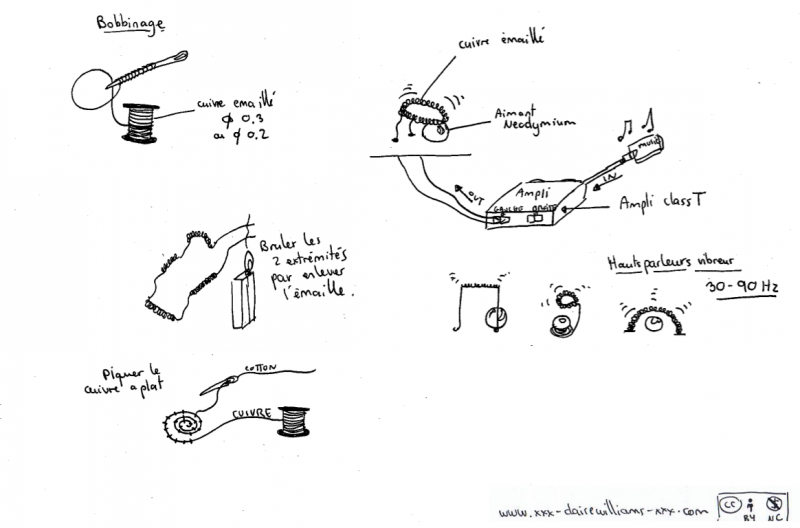 Bobbinage
cuivre emaillé
ϕ 0.3
ou ϕ 0.2
cuivre émaillé
Aimant
Neodymium
music
IN
OUT
Ampli
GAUCHE DROITE
Ampli class T
Bruler les
2 extrémités
par enlever
l'émaille.
Hauts parleurs vibreur
30-90 Hz
Piquer le
cuivre a plat
COTTON
CUIVRE
www.xxx-clairewilliams-xxx.com
CC
BY NC